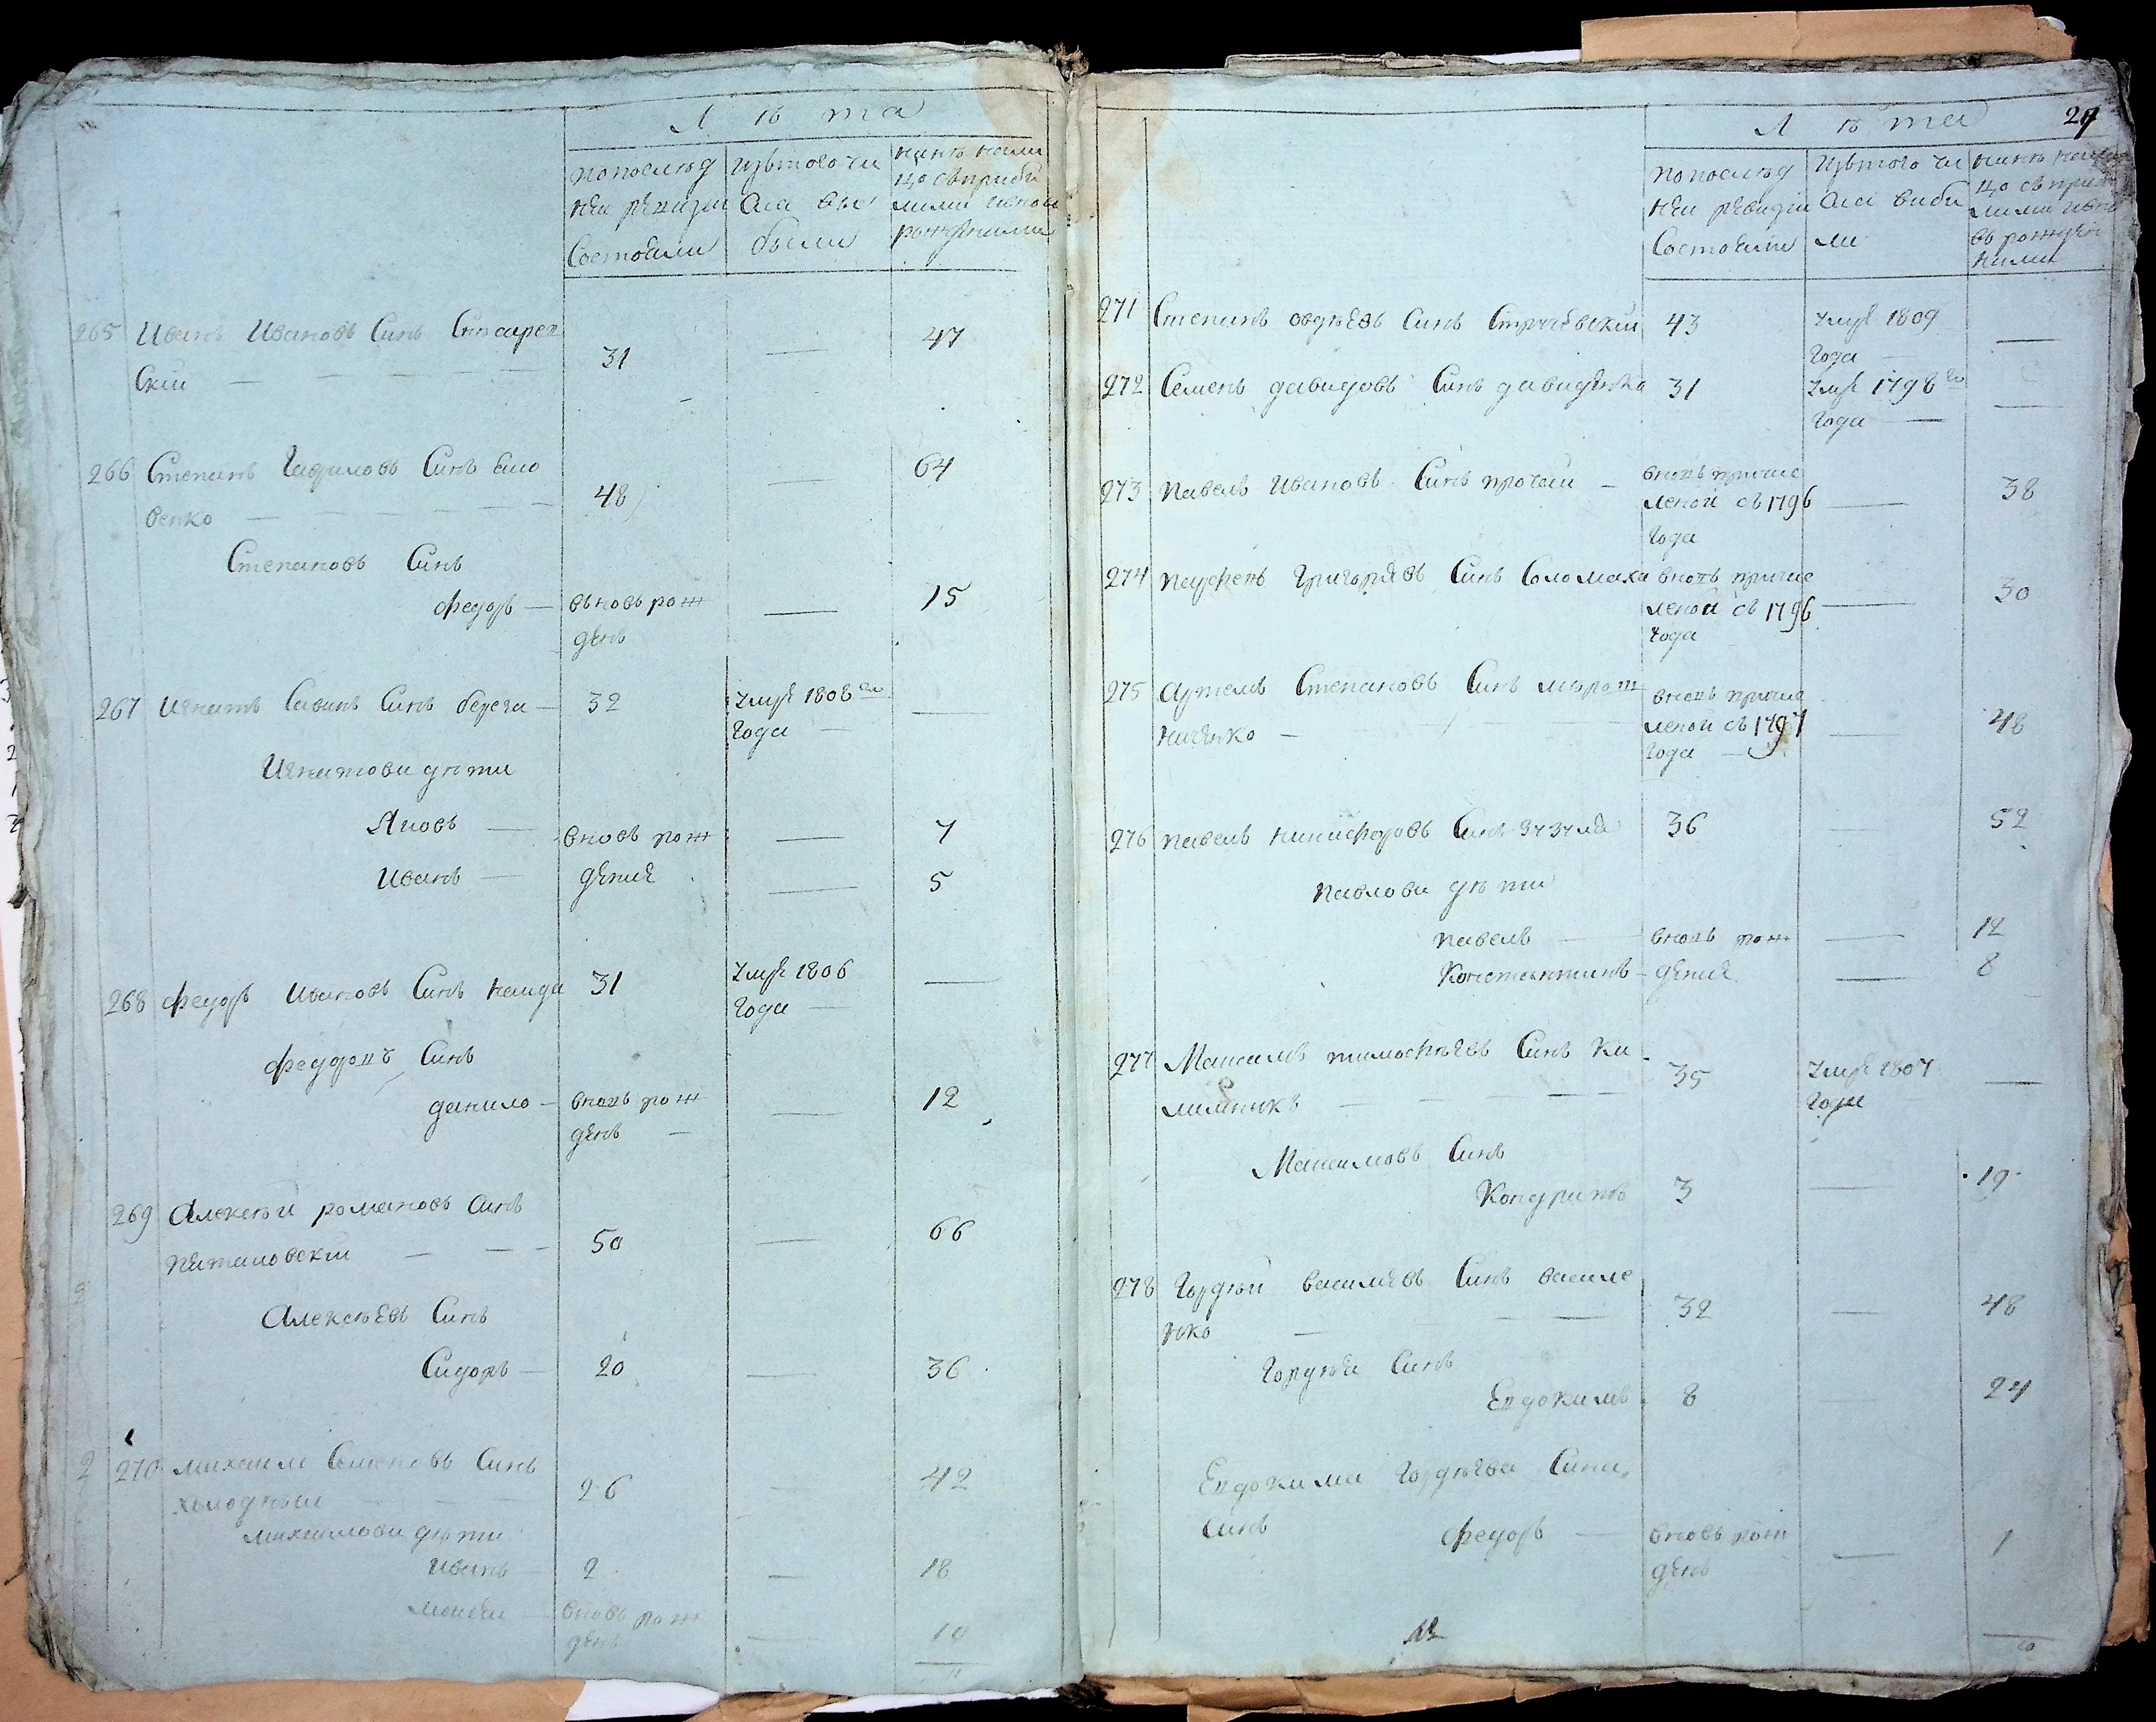 Лѣта
попослѣд
неи ревизіи
Состояли
Изътого чи
сла вы
были
нинѣ нали
цо съприби
лими иново
рожденими
265 Иванъ Ивановъ Синъ
скіи
31 — 47
266 Степанъ Гавриловъ Синъ
венко
48 — 64
Степановъ Синъ
Федоръ — вьновь рож
денъ — 15
267 Игнатъ Савинъ Синъ берега — 32 Умре 1808го
Года —
Игнатови дѣти
Яковъ — вновь рож — 7
Иванъ — дение — 5
268 Федоръ Ивановъ Синъ найда 31 Умре 1806
Года —
Федоровъ Синъ
данило — вновь рож
денъ — 12
269 Алексѣй романовъ Синъ
50 — 66
Алексѣевъ Синъ
Сидоръ — 20 — 36
270 михаиле Семеновъ Синъ
холодныи 26 — 42
михаилови дѣти
Иванъ 2 — 18
вновь рож
денъ — 10
Лѣта
29
попослѣд
неи ревизіи
Состояли
Изътого чи
сла виби
ли
нинѣ нали
цо съприби
лими ивно
вь рожден
ними
271 Степанъ авдѣевъ Синъ 43 Умре 1809
Года —
272 Семенъ давидовъ Синъ давиденко 31 Умре 1798го
Года —
273 Павелъ Ивановъ Синъ — вновь причис
леной съ 1796
Года — 38
274 парфенъ Григорѣвъ Синъ Соломаха вновь причис
леной съ 1796
Года — 30
275 Артемъ Степановъ Синъ мѣрош
ниченко — вновь причис
леной съ 1797
Года — 48
276 павелъ никифоровъ Синъ 36 52
павлови дѣти
павелъ — вновь рож — 12
Константинъ — дение — 8
277 Максимъ тимофѣевъ Синъ Ка
лашникъ 35 Умре 1807
Года —
Максимовъ Синъ
Кондратъ 3 — 19
278 Гордѣй василевъ Синъ василе
нко — 32 — 48
Гордѣя Синъ
Евдокимъ 8 24
Евдокима Гордѣева Сина,
Синъ Федоръ — вновь рож
денъ — 1